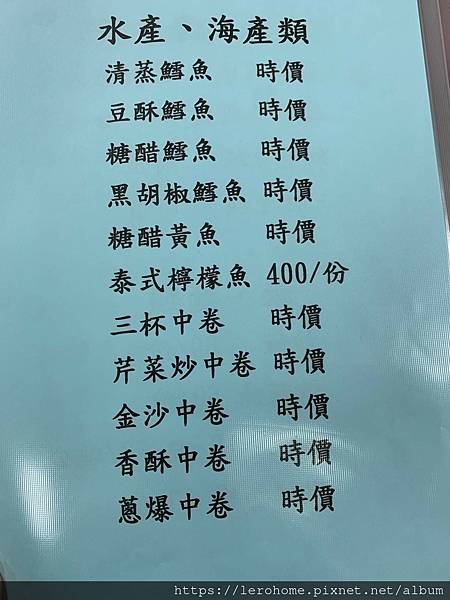 水產、海產類
清蒸鱈魚 時價
豆酥鱈魚 時價
糖醋鱈魚 時價
黑胡椒鱈魚 時價
糖醋黃魚 時價
泰式檸檬魚 400/份
三杯中卷 時價
芹菜炒中卷 時價
金沙中卷 時價
香酥中卷 時價
蔥爆中卷 時價
https://lerohome.pixnet.net/album